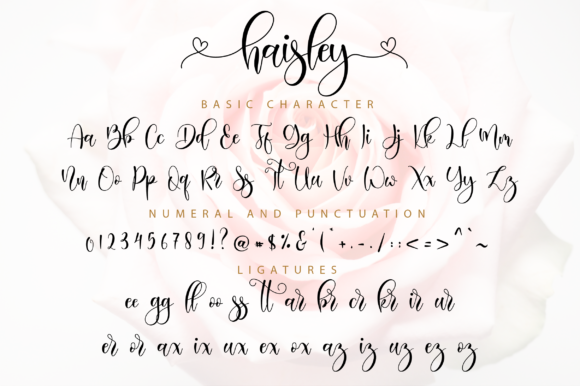 haisley
BASIC CHARACTER
Aa Bb Cc Dd Ee Ff Gg Hh Ii Jj Kk Ll Mm
Nn Oo Pp Qq Rr Ss Tt Uu Vv Ww Xx Yy Zz
NUMERAL AND PUNCTUATION
0123456789!?@*#$%&'(`+,-./:;<=>^`~
LIGATURES
ee gg ll oo ss tt ar br cr kr ir ur
er or ax ix ux ex ox az iz uz ez oz